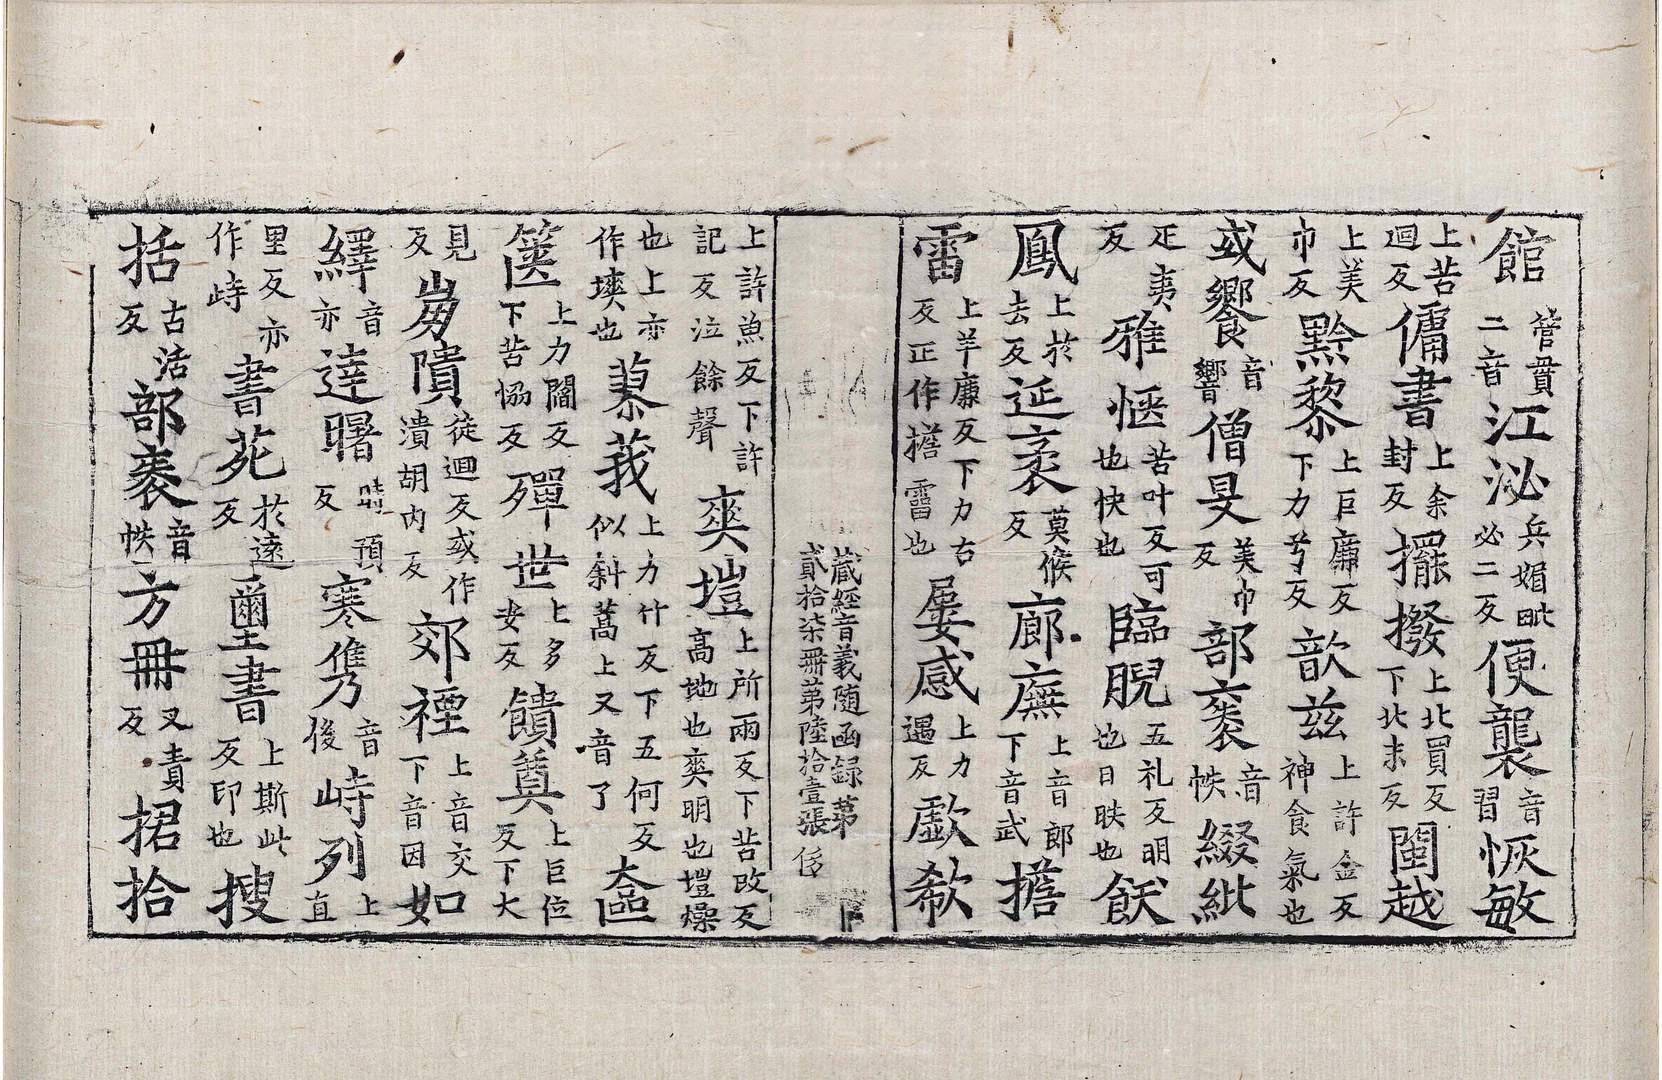 館管貫二音江泌兵媚毗必二反便襲音習恢敏
上苦迴反傭書上余封反擺撥上北買反下北末反閩越
上美巾反黔黎上巨廉反下力兮反歆兹上許金反神食氣也
或饗音響僧旻美巾反部袠音帙綴紕
疋夷反雅愜苦叶反可也快也臨睨五礼反明也日昳也飫
鳳上於去反延袤莫候反廊廡上音郎下音武擔
霤上羊廉反下力右反正作檐霤也屢感上力遇反歔欷
藏經音義随函録第貳拾柒冊第陸拾壹張
上許魚反下許記反泣餘聲奭塏上所兩反下苦改反高地也奭明也塏燥
也上亦作塽也蓼莪上力竹反下五何反似斜蒿上又音了奩
篋上力閻反下苦恊反殫世上多安反饋奠上巨位反下大
見反㞳隤徒迴反或作潰胡内反郊禋上音交下音因如
繹音亦逹曙時預反寒隽音後峙列上直
里反亦作峙書苑於遠反璽書上斯此反印也搜
括古活反部袠音帙方冊叉責反捃拾